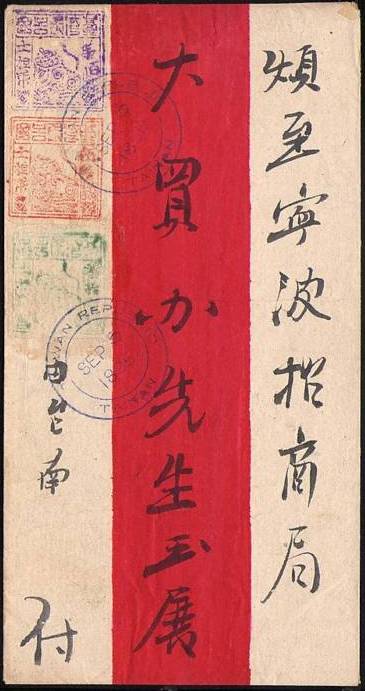 煩至寧波招商局
大買办先生玉展
由台南
付
TAIWAN REP
SEP
18
TAIWAN REP
SEP
18